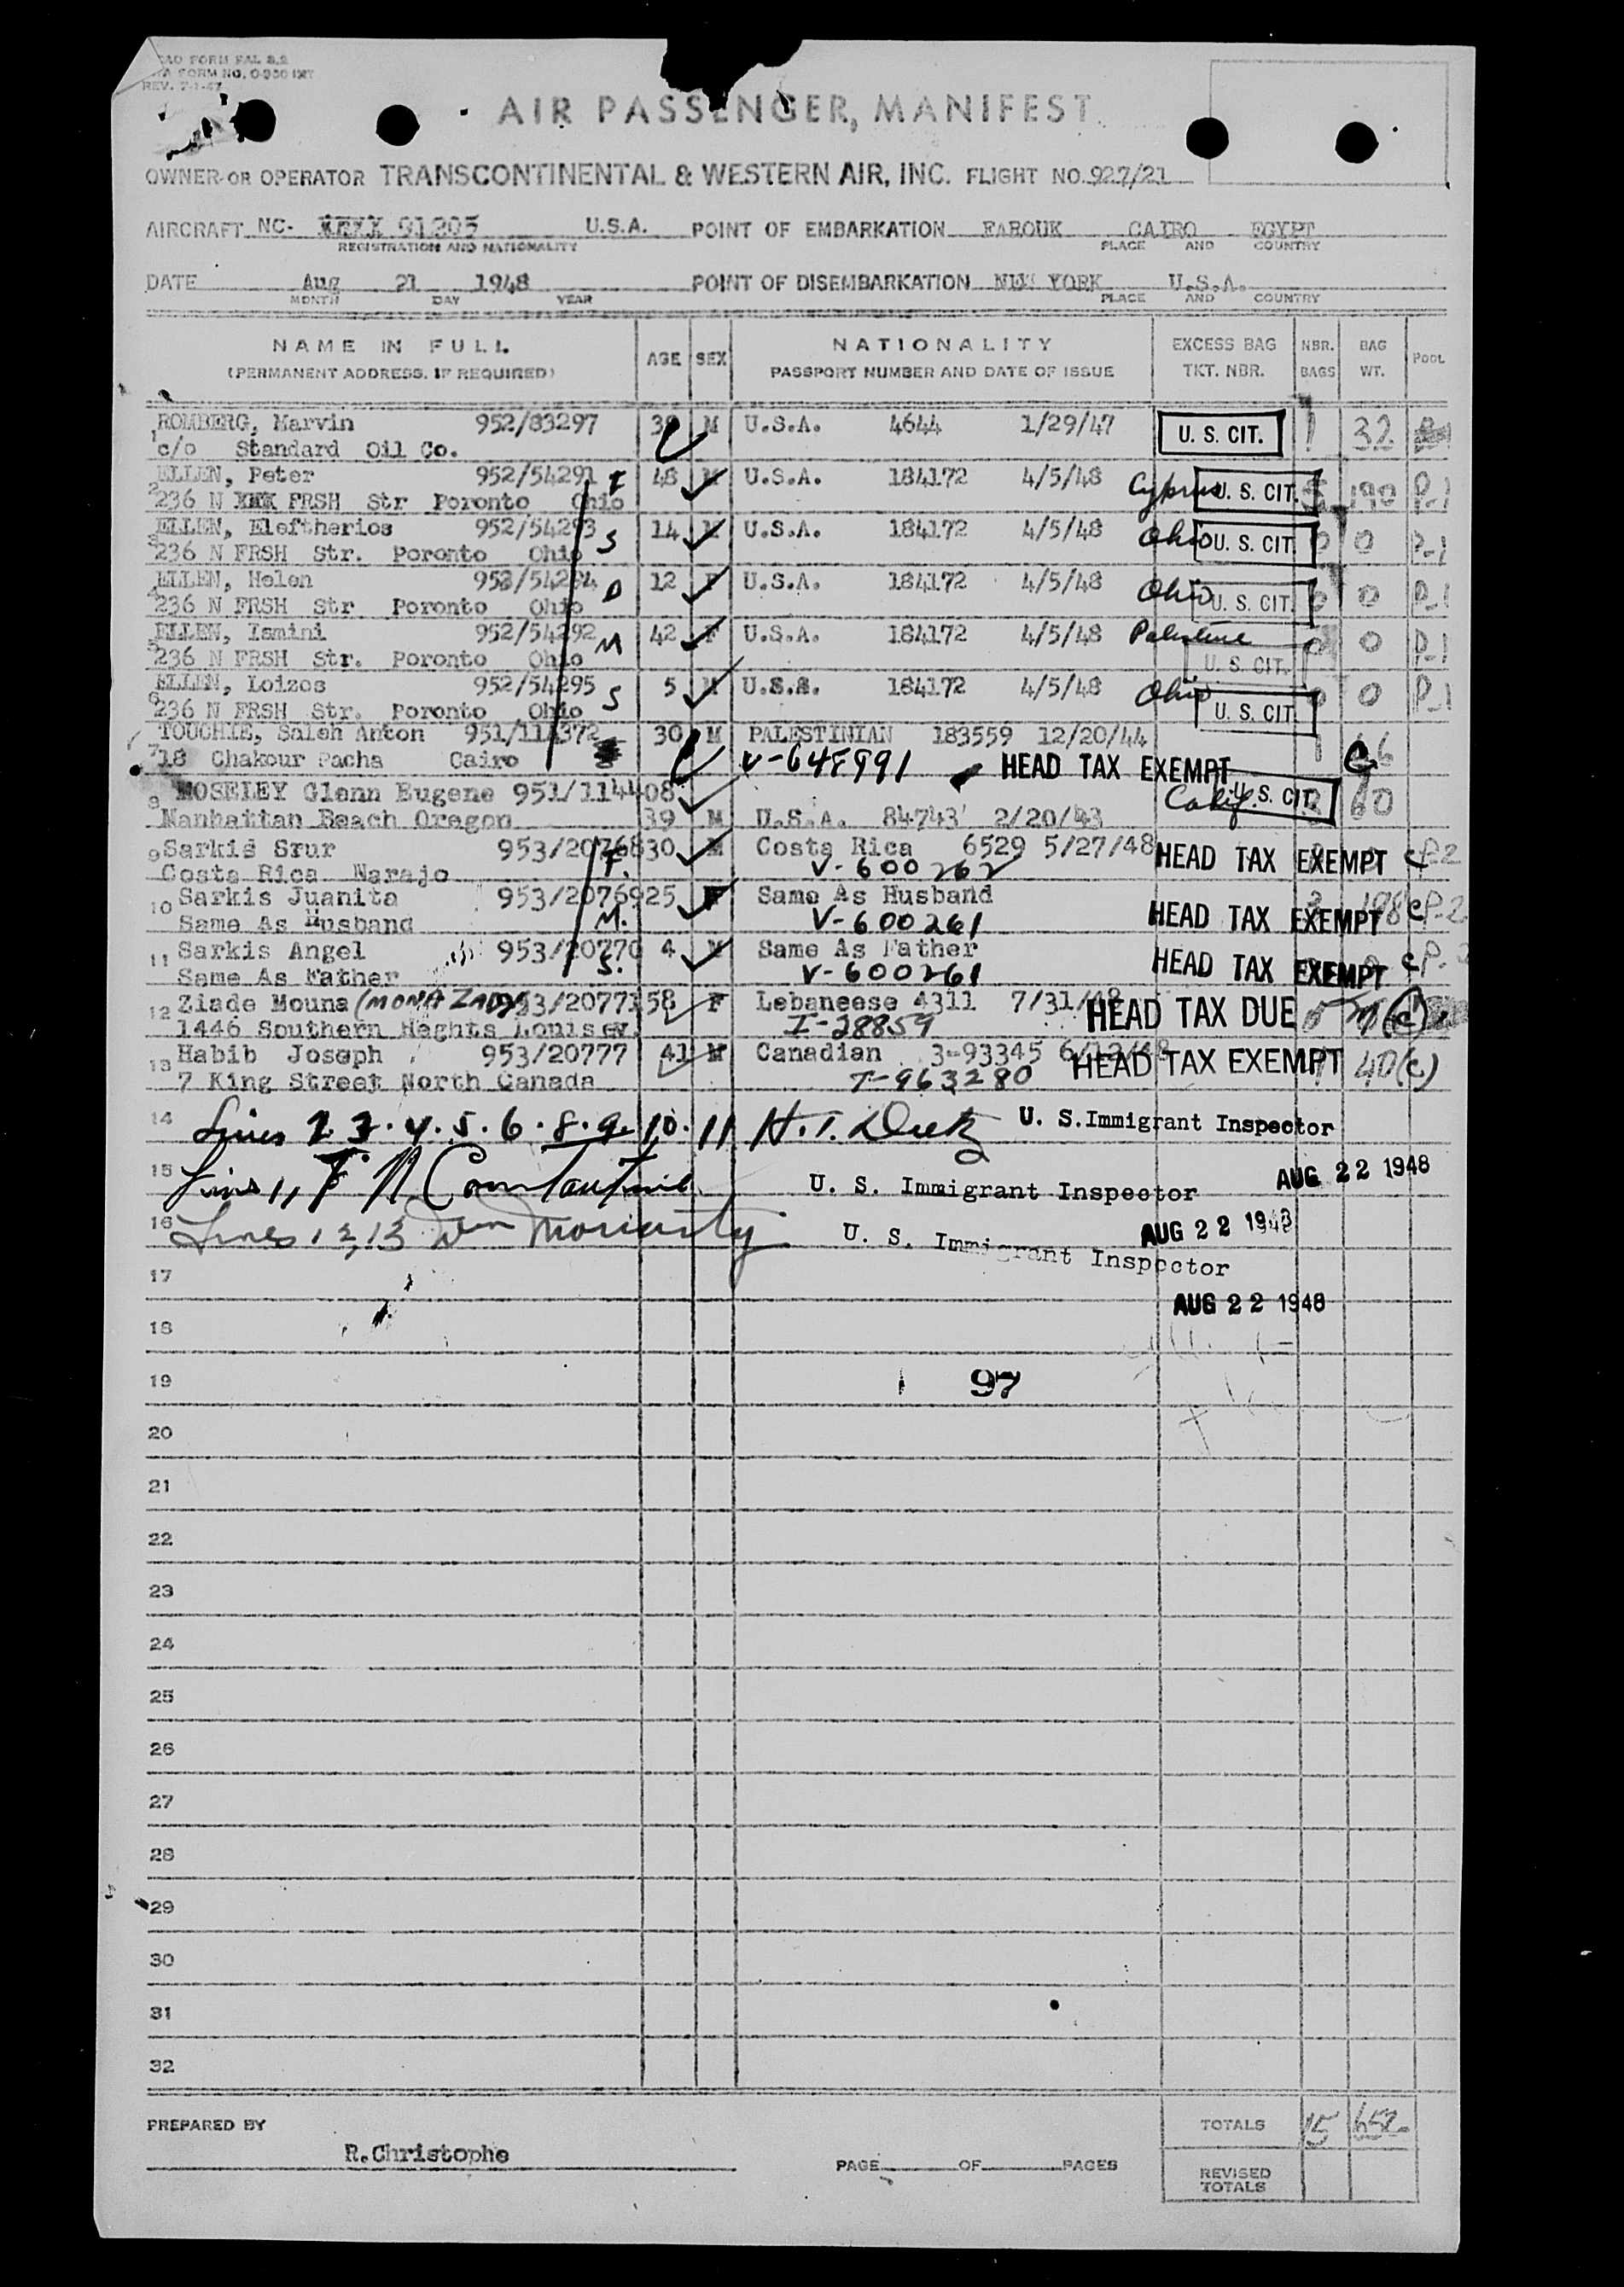 REV. 7-1-47
AIR PASSENGER MANIFEST
OWNER OR OPERATOR TRANSCONTINENTAL & WESTERN AIR, INC. FLIGHT NO. 927/21
AIRCRAFT NC- 91205 U.S.A. POINT OF EMBARKATION FAROUK CAIRO EGYPT
REGISTRATION AND NATIONALITY PLACE AND COUNTRY
DATE Aug 21 1948 POINT OF DISEMBARKATION NEW YORK U.S.A.
MONTH DAY YEAR PLACE AND COUNTRY
NAME IN FULL AGE SEX NATIONALITY EXCESS BAG NBR. BAG POOL
(PERMANENT ADDRESS, IF REQUIRED) PASSPORT NUMBER AND DATE OF ISSUE TKT. NBR. BAGS WT.
ROMBERG, Marvin 952/83297 M U.S.A. 4644 1/29/47 U. S. CIT. 1 32
1 c/o Standard Oil Co.
ELLEN, Peter 952/54291 F 48 M U.S.A. 184172 4/5/48 Cyprus U. S. CIT. 190 P-1
2 236 N XXX FRSH Str Poronto Ohio
ELLEN, Eleftherios 952/54293 S 14 M U.S.A. 184172 4/5/48 Ohio U. S. CIT. 0 0 P-1
3 236 N FRSH Str. Poronto Ohio
ELLEN, Helen 952/54294 D 12 F U.S.A. 184172 4/5/48 Ohio U. S. CIT. 0 0 P-1
4 236 N FRSH Str Poronto Ohio
ELLEN, Ismini 952/54292 M 42 F U.S.A. 184172 4/5/48 Palestine U. S. CIT. 0 0 P-1
5 236 N FRSH Str. Poronto Ohio
ELLEN, Loizos 952/54295 S 5 M U.S.A. 184172 4/5/48 Ohio U. S. CIT. 0 0 P-1
6 236 N FRSH Str. Poronto Ohio
TOUCHIE, Saleh Anton 951/114372 30 M PALESTINIAN 183559 12/20/44 1
7 18 Chakour Pacha Cairo V-648991 HEAD TAX EXEMPT
8 MOSELEY Glenn Eugene 951/114408 Calif. U. S. CIT. 60
Manhattan Beach Oregon 39 M U.S.A. 84743 2/20/43
9 Sarkis Srur 953/20768 30 M Costa Rica 6529 5/27/48 HEAD TAX EXEMPT C P-2
Costa Rica Narajo F. V-600262
10 Sarkis Juanita 953/20769 25 F Same As Husband HEAD TAX EXEMPT 198 C P-2
Same As Husband M. V-600261
11 Sarkis Angel 953/20770 4 M Same As Father HEAD TAX EXEMPT C P-
Same As Father S. V-600261
12 Ziade Mouna (MONA ZADY) 953/20771 58 F Lebaneese 4311 7/31/48 HEAD TAX DUE (C)
1446 Southern Heghts Louis KY. I-28859
13 Habib Joseph 953/20777 41 M Canadian 3-93345 6/12/48 HEAD TAX EXEMPT 1 40 (C)
7 King Street North Canada T-963280
14 Lines 2 3. 4. 5. 6. 8. 9. 10. 11 U. S. Immigrant Inspector
15 Lines 1, 7 U. S. Immigrant Inspector AUG 22 1948
16 Lines 12, 13 Wm Moriarty U. S. Immigrant Inspector AUG 22 1948
17
AUG 22 1948
18
19 97
20
21
22
23
24
25
26
27
28
29
30
31
32
PREPARED BY TOTALS 15 652-
R.Christophe
PAGE OF PAGES
REVISED
TOTALS